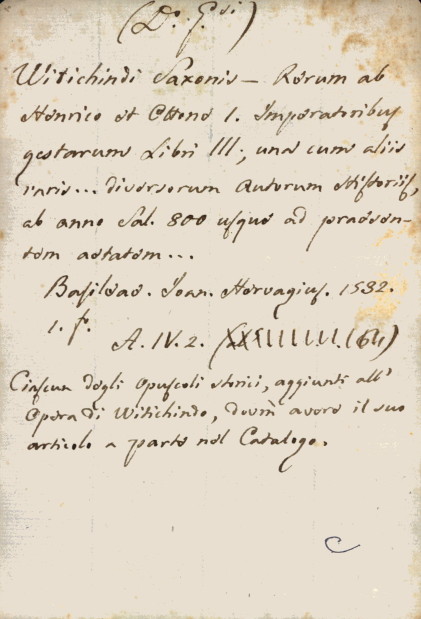 (D.r G.si)
Witichindi Saxonis - Rerum ab
Henrico et Ottone I. Imperatoribus
gestarum Libri III; una cum aliis
raris... diversorum Autorum Historiis,
ab anno Sal. 800 usque ad praesen-
tem aetatem...
Basileae. Ioan. Hervagius. 1532.
1. f.
A. IV. 2. (64)
Ciascun degli opuscoli storici, aggiunti all'
Opera di Witichindo, devm̃ avere il suo
articolo a parte nel Catalogo.
C